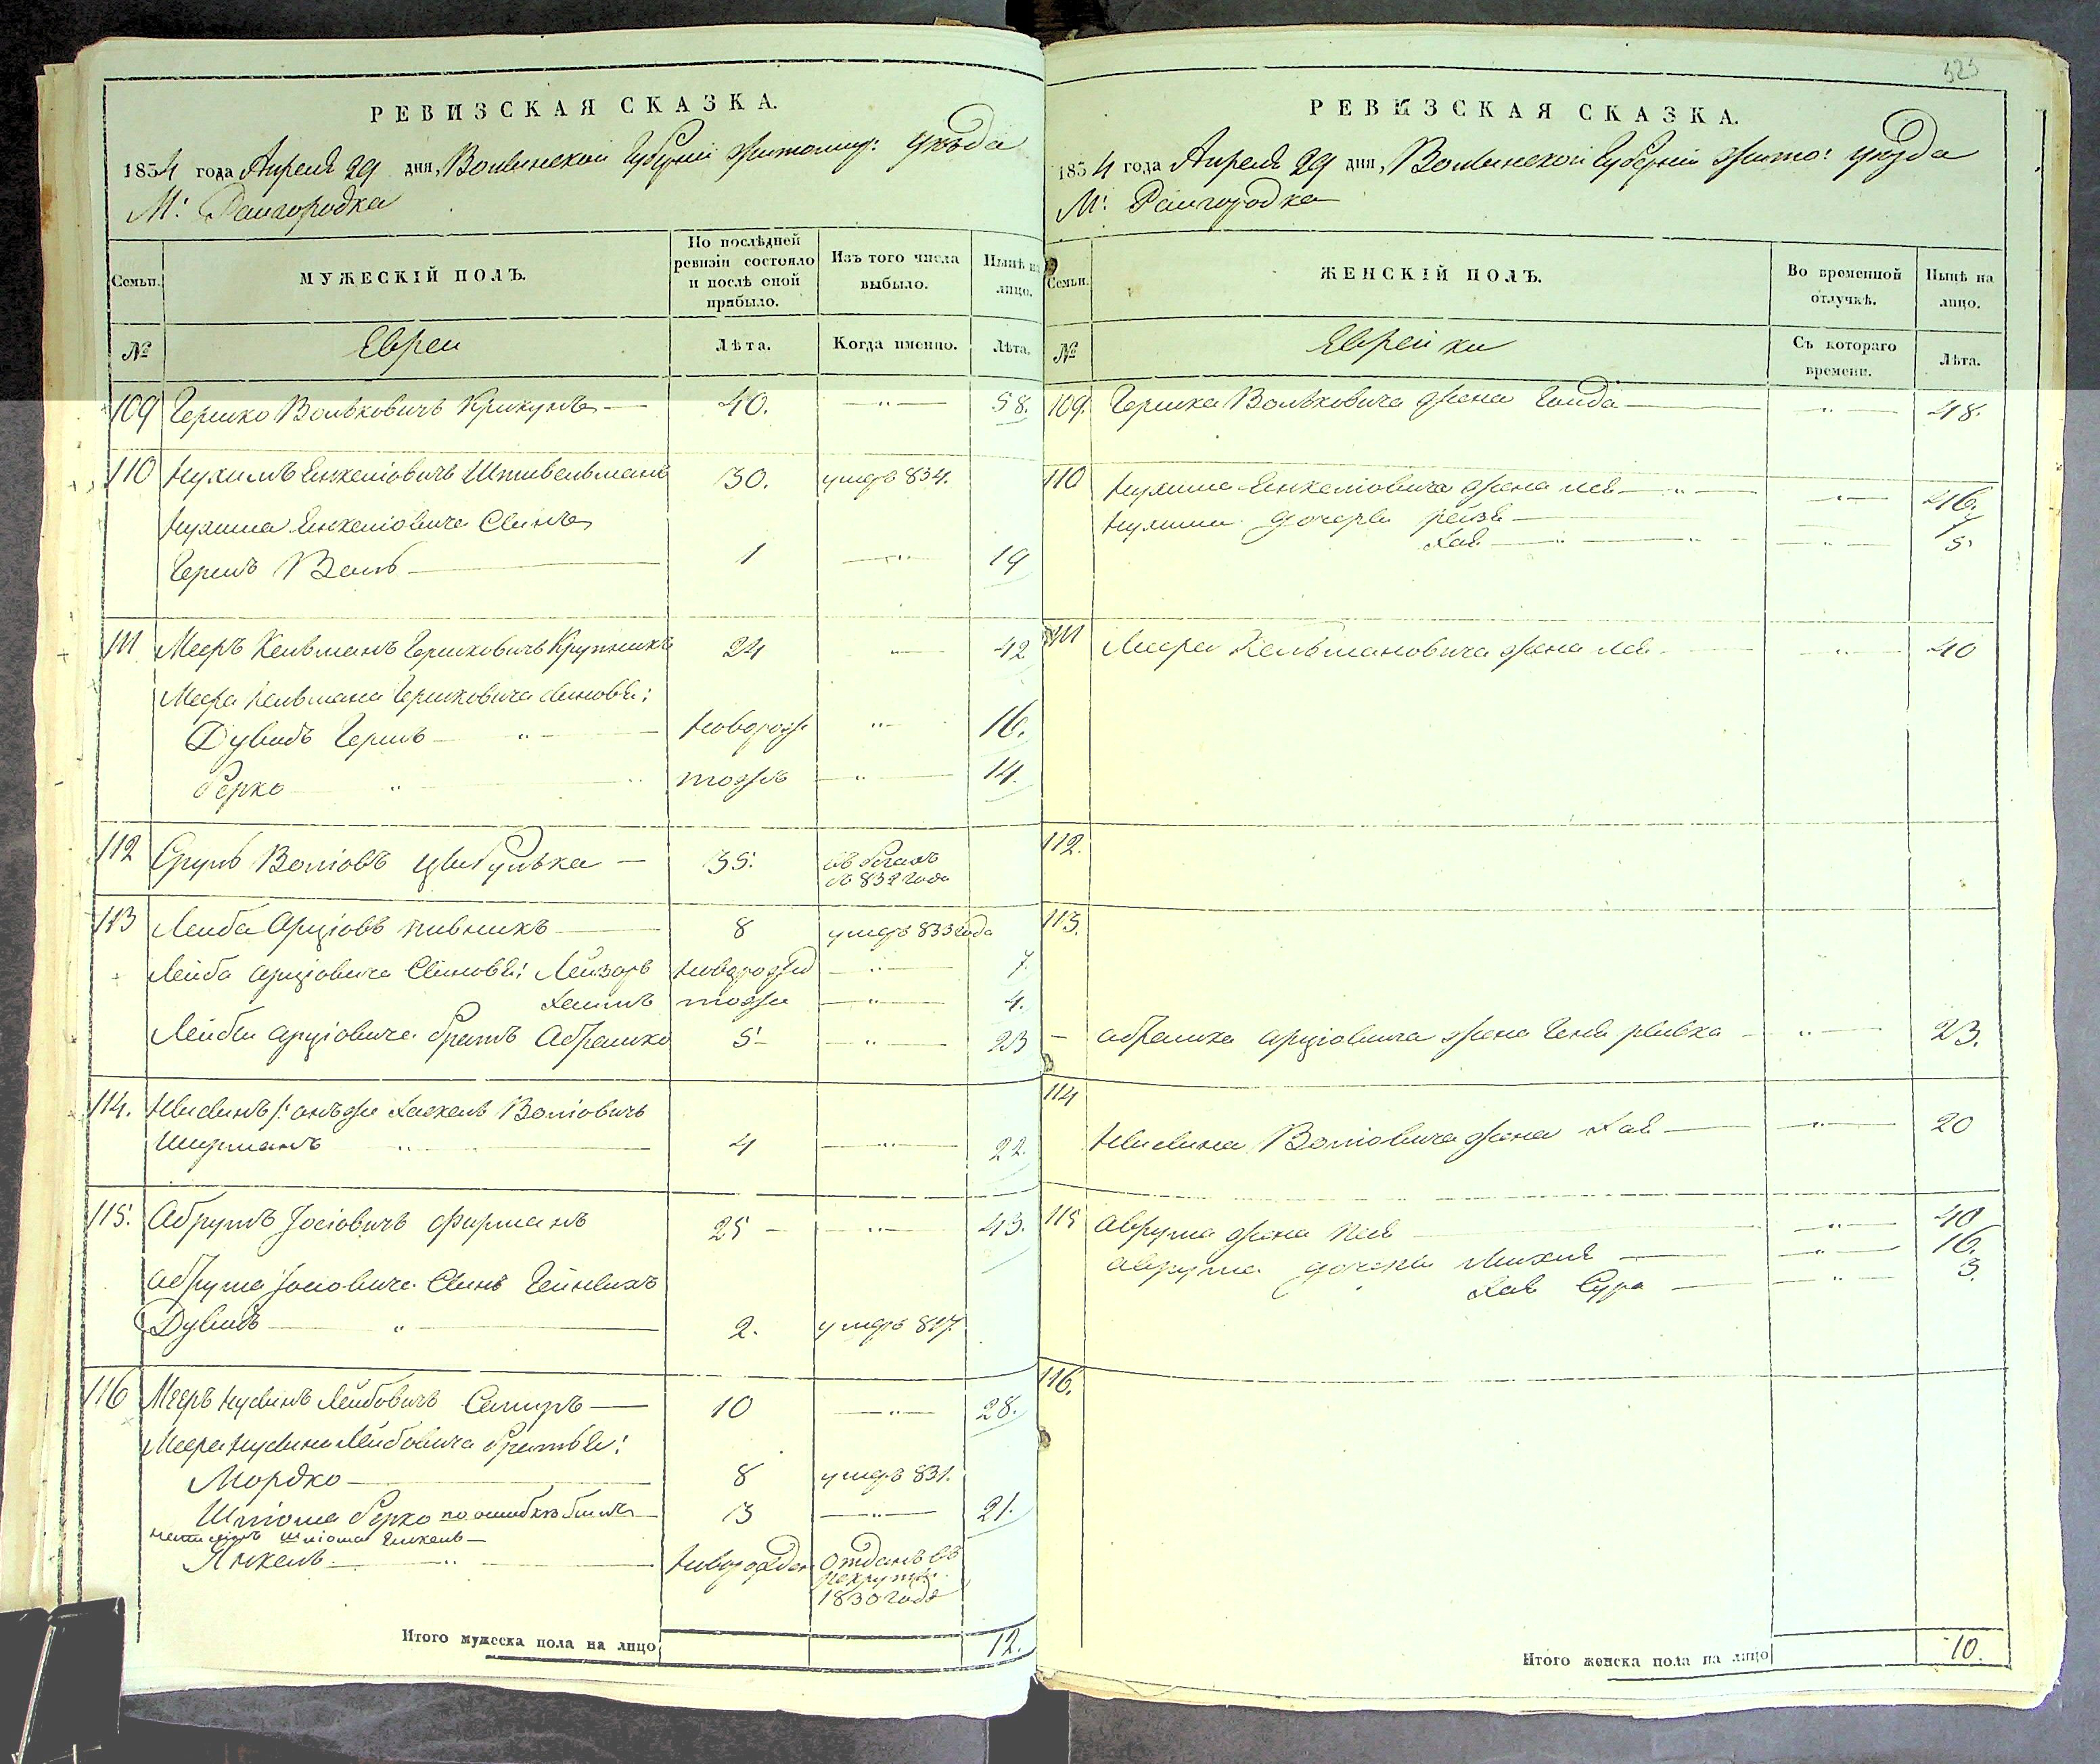 РЕВИЗСКАЯ СКАЗКА.
1854 года Апреля 29 дня, Волынской Губернiи Житомир: уѣзда
М: Райгородка
Семьи.
МУЖЕСКIЙ ПОЛЪ.
По послѣдней ревизiи состояло и послѣ оной прибыло.
Изъ того числа выбыло.
Нынѣ на лицо.
№
Евреи
Лѣта.
Когда именно.
Лѣта.
109 Гершко Вольковичъ Крикунъ 40. 58.
110 Нухимъ Янкелiовичъ Штивельманъ 30. умеръ 834.
Нухима Янкелiовича Сынъ
Гершъ Волъ 1 19
111 Мееръ Кельманъ Гершковичъ Крупникъ 24 42
Меера Кельмана Гершковича сыновья:
Дувидъ Гершъ новорож. 16.
Берко тожъ 14.
112 Срулъ Волiовъ Цыбулька 35. въ бегахъ
съ 832 года
113 Лейба Арцiовъ Пивникъ 8 умеръ 833 года
Лейба Арцiовича Сыновья: Лейзоръ новорожд 7.
Хаимъ тоже 4.
Лейбы Арцiовича братъ Абрамко 5 23
114. онъ же Хаскель Волiовичъ
Ширманъ 4 22.
115. Абрумъ Iосiовичъ Фурманъ 25 43.
Абрума Iосiовича Сынъ
Дувидъ 2. умеръ 847.
116 Мееръ Нусинъ Лейбовичъ 10 28.
Меера Нусина Лейбовича братья:
Мордко 8 умеръ 831.
Шлiома Берко по ошибкѣ былъ 3 21.
написанъ Шлiома Янкель
Янкель новорожден Отданъ въ
рекруты
1850 года
Итого мужеска пола на лицо 12.
РЕВИЗСКАЯ СКАЗКА.
1854 года Апреля 29 дня, Волынской Губернiи Жито: уѣзда
М: Райгородка
Семьи.
ЖЕНСКIЙ ПОЛЪ.
Во временной отлучкѣ.
Нынѣ на лицо.
№
Еврейки
Съ котораго времени.
Лѣта.
109. Гершка Вольковича жена Голда 48.
110 Нухима Янкелiовича жена Лея 46.
Нухима дочери Рейзя 7
Хая 5
111 Меера Кельмановича жена Лея 40
112.
113.
Абрамка Арцiовича жена Геня Ривка 23.
114
Волiовича жена Хая 20
115 Аврума жена 40
Аврума дочери 16.
Хая Сура 3.
116.
Итого женска пола на лицо 10.